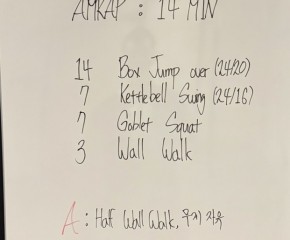 AMRAP : 14 MIN
14 Box Jump over (24/20)
7 Kettlebell Swing (24/16)
7 Goblet Squat
3 Wall Walk
A : Half Wall Walk,